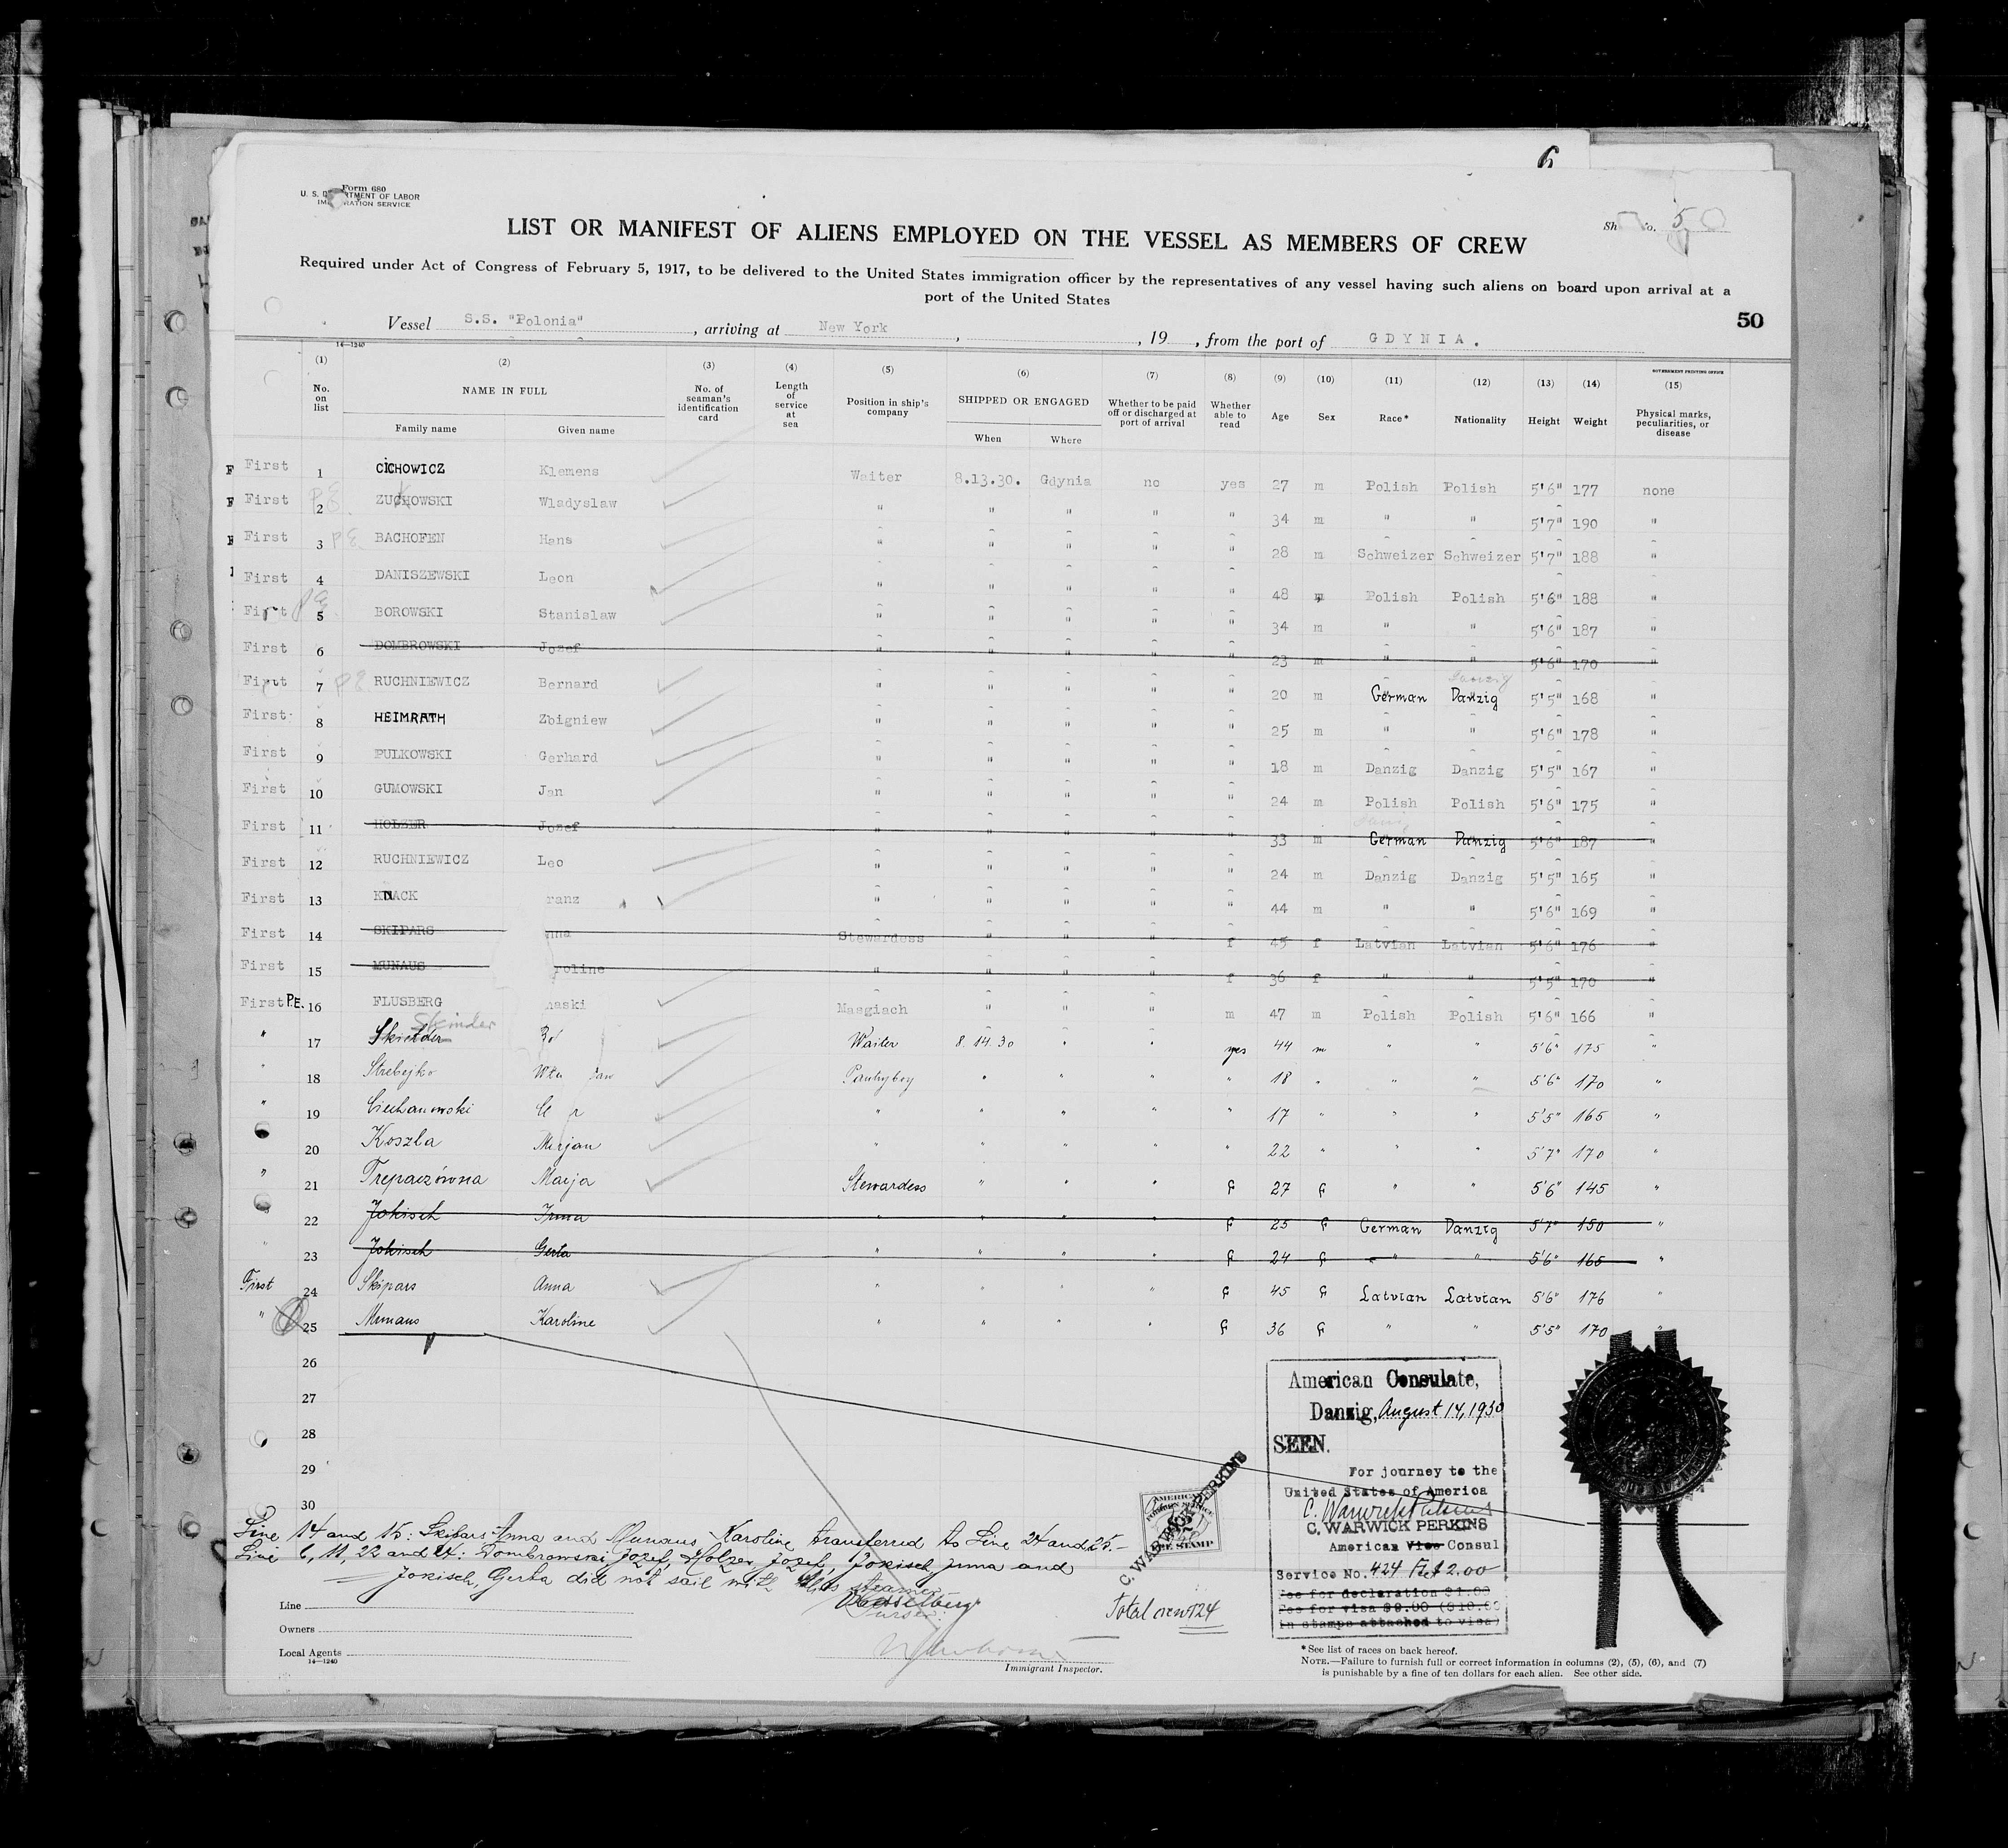 6
Form 680
U. S. D RTMENT OF LABOR
IM RATION SERVICE
Sh o. 50
LIST OR MANIFEST OF ALIENS EMPLOYED ON THE VESSEL AS MEMBERS OF CREW
Required under Act of Congress of February 5, 1917, to be delivered to the United States immigration officer by the representatives of any vessel having such aliens on board upon arrival at a
port of the United States
50
Vessel S.S. "Polonia" , arriving at New York , , 19 , from the port of GDYNIA.
14—1240
GOVERNMENT PRINTING OFFICE
(1) (2) (3) (4) (5) (6) (7) (8) (9) (10) (11) (12) (13) (14) (15)
No. on list NAME IN FULL Family name Given name No. of seaman's identification card Length of service at sea Position in ship's company SHIPPED OR ENGAGED When Where Whether to be paid off or discharged at port of arrival Whether able to read Age Sex Race* Nationality Height Weight Physical marks, peculiarities, or disease
First 1 CICHOWICZ Klemens Waiter 8.13.30. Gdynia no yes 27 m Polish Polish 5'6" 177 none
First 2 ZUCHOWSKI Wladyslaw " " " " " 34 m " " 5'7" 190 "
First 3 PE. BACHOFEN Hans " " " " " 28 m Schweizer Schweizer 5'7" 188 "
First 4 DANISZEWSKI Leon " " " " " 48 m Polish Polish 5'6" 188 "
First 5 BOROWSKI Stanislaw " " " " " 34 m " " 5'6" 187 "
First 6 DOMBROWSKI Jozef " " " " " 23 m " " 5'6" 170 "
First 7 PE RUCHNIEWICZ Bernard " " " " " 20 m German Danzig 5'5" 168 "
First 8 HEIMRATH Zbigniew " " " " " 25 m " " 5'6" 178 "
First 9 PULKOWSKI Gerhard " " " " " 18 m Danzig Danzig 5'5" 167 "
First 10 GUMOWSKI Jan " " " " " 24 m Polish Polish 5'6" 175 "
First 11 HOLZER Jozef " " " " " 33 m German Danzig 5'6" 187 "
First 12 RUCHNIEWICZ Leo " " " " " 24 m Danzig Danzig 5'5" 165 "
First 13 KNACK ranz " " " " " 44 m " " 5'6" 169 "
First 14 SKIPARS nna Stewardess " " " f 45 f Latvian Latvian 5'6" 176 "
First 15 MUNAUS roline " " " " f 36 f " " 5'5" 170 "
First P.E. 16 FLUSBERG haski Masgiach " " " m 47 m Polish Polish 5'6" 166 "
Skinder
" 17 Skinder Waiter 8.14.30 " " yes 44 m " " 5'6" 175 "
" 18 Strebejko Wła ław Pantryboy " " " " 18 " " " 5'6" 170 "
" 19 Ciechanowski " " " " " 17 " " " 5'5" 165 "
20 Koszla Mirjan " " " " " 22 " " " 5'7" 170 "
" 21 Trepaczówna Marja Stewardess " " " f 27 f " " 5'6" 145 "
22 Jokisch Irma " " " " f 25 f German Danzig 5'7" 150 "
" 23 Jokisch Gerta " " " " f 24 f " " 5'6" 165 "
First 24 Skipars Anna " " " " f 45 f Latvian Latvian 5'6" 176 "
" 25 Munaus Karoline " " " " f 36 f " " 5'5" 170 "
26
27
28
29
30
American Consulate,
Danzig, August 14, 1930
SEEN.
For journey to the
United States of America
C. Warwick Perkins
C. WARWICK PERKINS
American Vice Consul
Service No. 424 2.00
Fee for declaration $1.00
Fee for visa $9.00 ($10.00
in stamps attached to visa)
AMERICAN
FOREIGN SERVICE
FEE STAMP
C. WARWICK PERKINS
Line 14 and 15: Skipars Anna and Munaus Karoline transferred to Line 24 and 25.-
Line 6, 11, 22 and 24: Dombrowski Jozef, Holzer, Jozef, Jokisch, Irma and
Jokisch, Gerta did not sail with this steamer
Purser.
Total crew 124
Line
Owners
Local Agents
14—1240
Immigrant Inspector.
*See list of races on back hereof.
NOTE.—Failure to furnish full or correct information in columns (2), (5), (6), and (7)
is punishable by a fine of ten dollars for each alien. See other side.